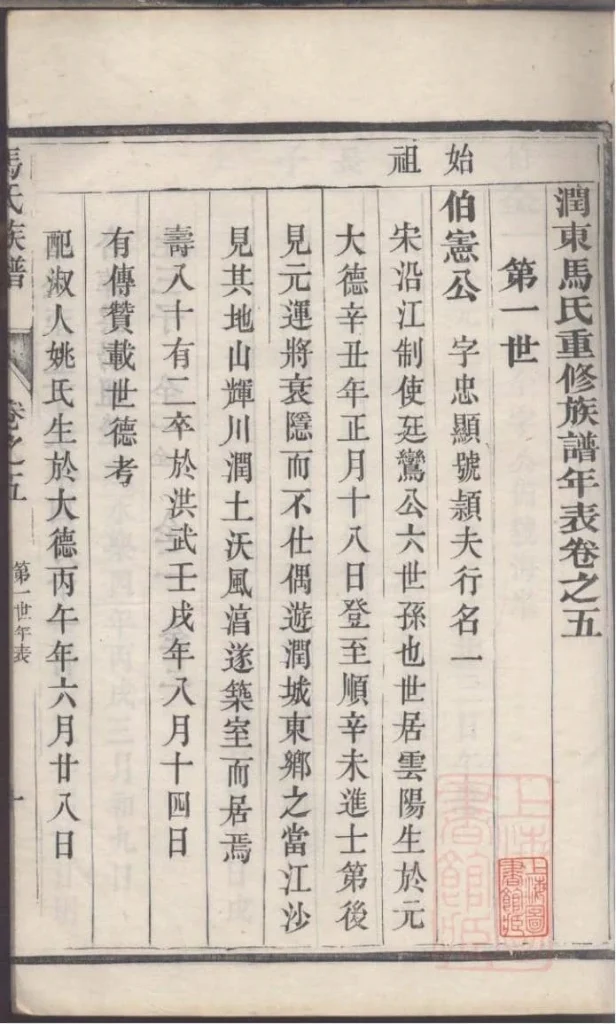 潤東馬氏重修族譜年表卷之五
第一世
始祖
伯憲公 字忠顯號頴夫行名一
宋沿江制使廷鸞公六世孫也世居雲陽生於元
大德辛丑年正月十八日登至順辛未進士第後
見元運將衰隱而不仕偶遊潤城東鄉之當江沙
見其地山輝川潤土沃風湻遂築室而居焉
壽八十有二卒於洪武壬戌年八月十四日
有傳贊載世德考
配淑人姚氏生於大德丙午年六月廿八日
馬氏族譜
卷之五
第一世年表
一
上海圖書館藏